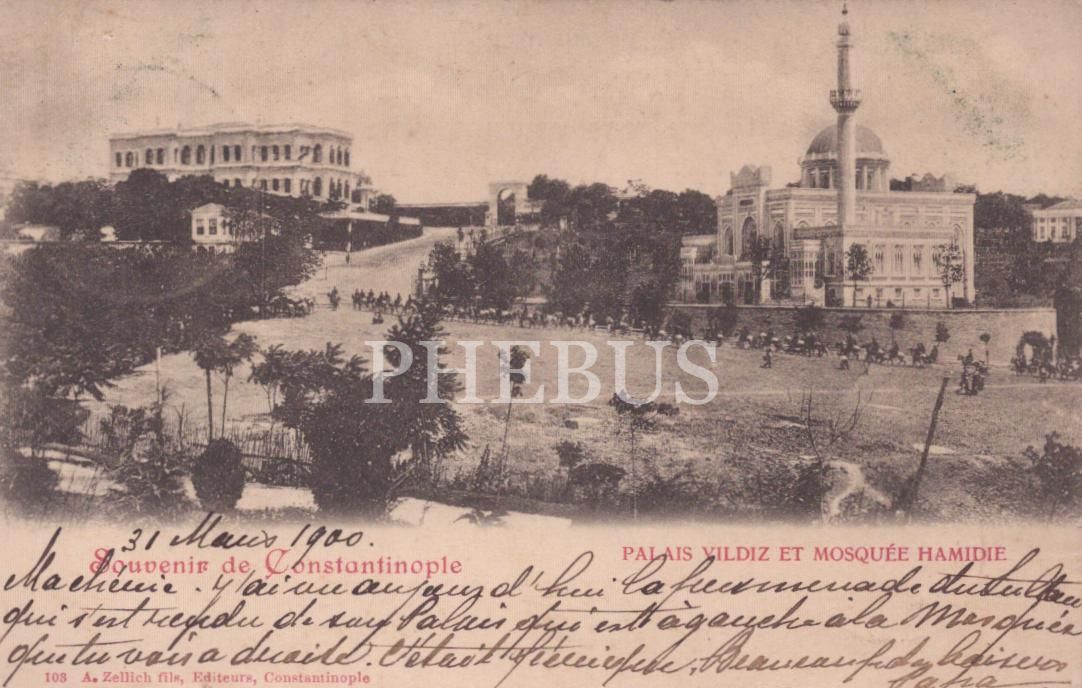 PHEBUS
31 Mars 1900.
Souvenir de Constantinople
PALAIS YILDIZ ET MOSQUÉE HAMIDIE
Ma chérie. J'ai vu aujourd'hui la promenade du Sultan
qui s'est rendu de son Palais qui est à gauche à la Mosquée
que tu vois à droite. C'était féerique. Beaucoup de baisers
Papa
103 A. Zellich fils, Editeurs, Constantinople